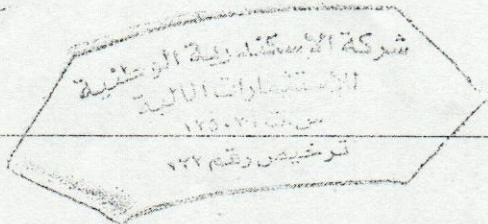 شركة الاسكندرية الوطنية
للإستثمارات المالية
س.ت ١٢٥٠٣١
ترخيص رقم ٧٢٢